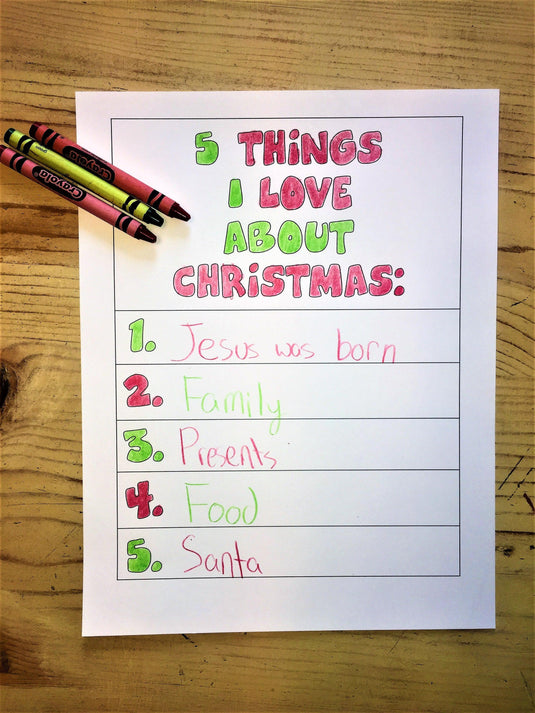 5 THiNGS
I LOVE
ABOUT
CHRiSTMAS:
1. Jesus was born
2. Family
3. Presents
4. Food
5. Santa
Crayola
Crayola